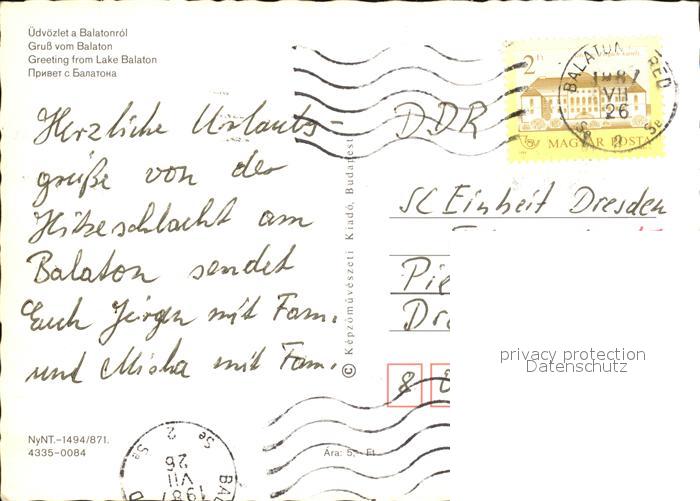 Üdvözlet a Balatonról
Gruß vom Balaton
Greeting from Lake Balaton
Привет с Балатона
Herzliche Urlaubs-
grüße von der
Hitzeschlacht am
Balaton sendet
Euch Jürgen mit Fam.
und Mischa mit Fam.
NyNT.–1494/871.
4335-0084
Ára: 5,– Ft
© Képzőművészeti Kiadó, Budapest
2 Ft
MAGYAR POSTA
1987
VII
26
Se 2 Se
DDR
SC Einheit Dresden
8
privacy protection
Datenschutz
1987
VII
26
Se 2 Se